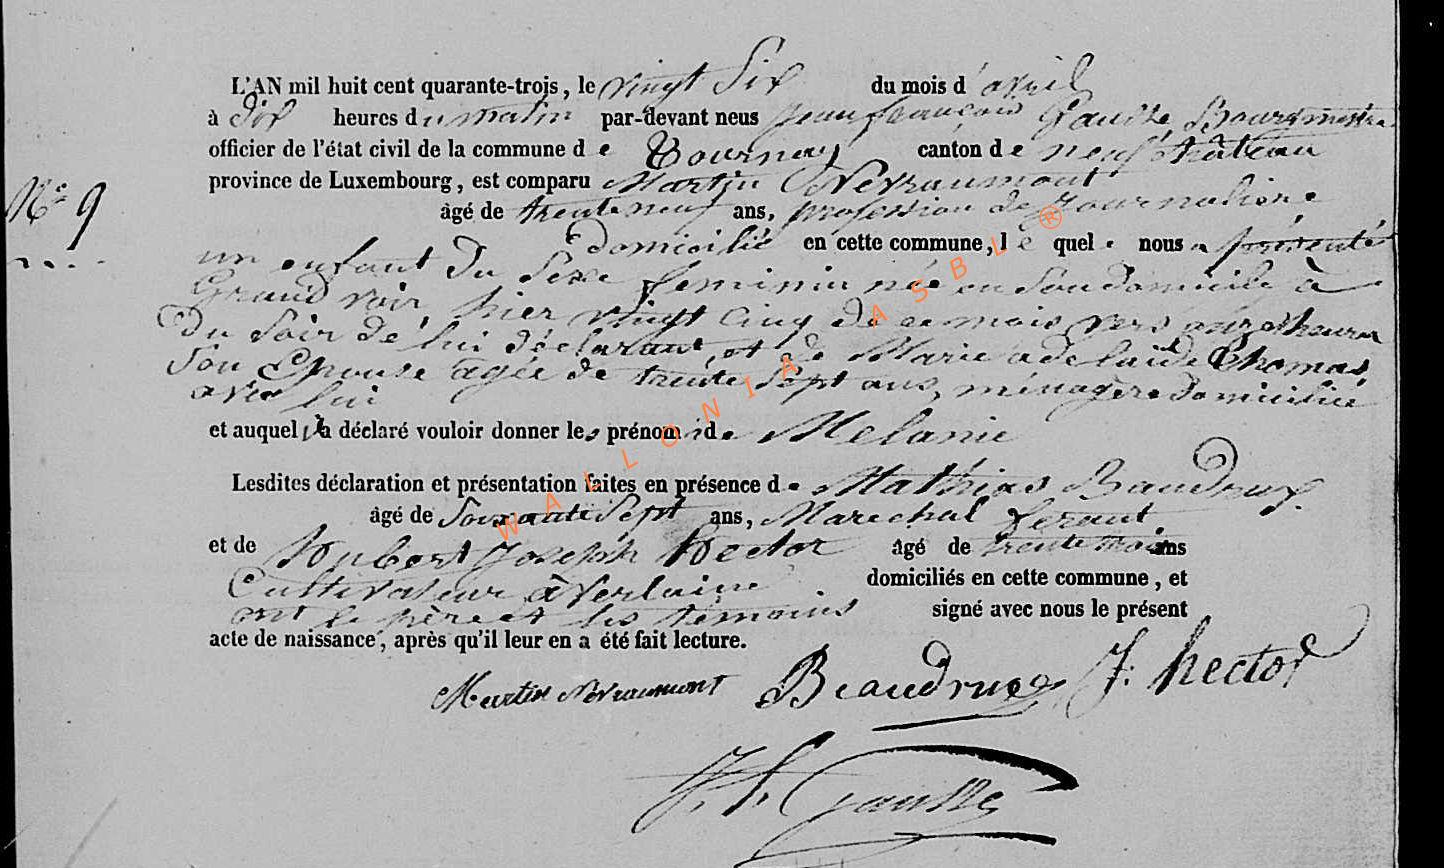 L'AN mil huit cent quarante-trois, le vingt Six du mois d'avril
à Dix heures du matin par-devant nous Jean françois Gausse Bourgmestre
officier de l'état civil de la commune de Tournay canton de neufchâteau
province de Luxembourg, est comparu Martin Nevraumont
N° 9
âgé de trente neuf ans, profession de Journalière
domicilié en cette commune, lequel nous a présenté
un enfant du Sexe féminin née en Son domicile à
Grand voir, hier vingt cinq de ce mois vers onze heures
du Soir de lui déclarant, et de Marie adelaide Thomas
Son Epouse agée de trente Sept ans, ménagere domiciliée
avec lui
et auquel il a déclaré vouloir donner les prénom de Mélanie
Lesdites déclaration et présentation faites en présence de Mathias Baudrux
âgé de Soixante Sept ans, Marechal ferant
et de Hubert Joseph Hector âgé de trente trois ans
Cultivateur à Verlaine domiciliés en cette commune, et
ont le père et les témoins signé avec nous le présent
acte de naissance, après qu'il leur en a été fait lecture.
Martin Nevraumont Beaudrux J: hector
J. f. Gausse
WALLONIA ASBL ®